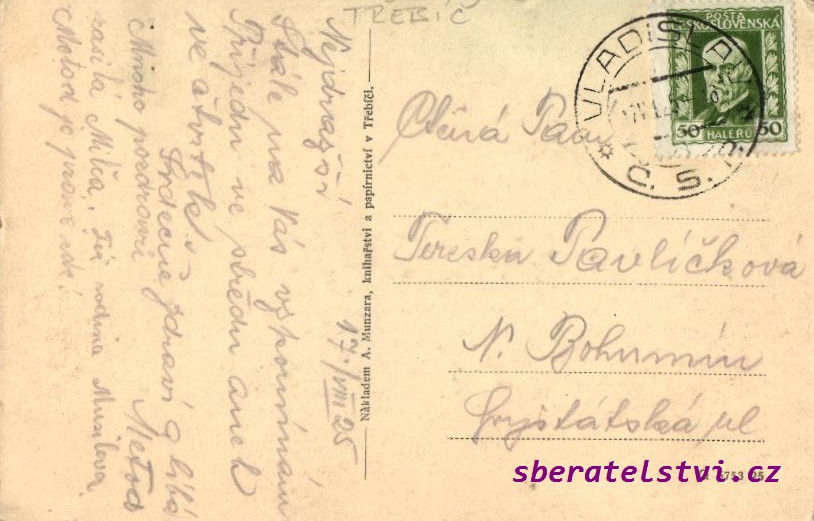 TŘEBÍČ
Nejdražší
Stále na Vás vzpomínám
Přijedu ve středu aneb
ve čtvrtek.
Srdečně zdraví a líbá
Metod
Mnoho pozdravů
rasila Milča. Též rodina Musilova
Metod je pravě
17./VIII 25
Nákladem A. Munzara, knihařství a papírnictví v Třebíči.
POŠTA
ČESKOSLOVENSKÁ
50 HALÉŘŮ 50
VLADISLAV
Č. S. P.
Ctěná Paní
Tereska Pavlíčková
N. Bohumín
Fryštátská ul
5753 25
sberatelstvi.cz